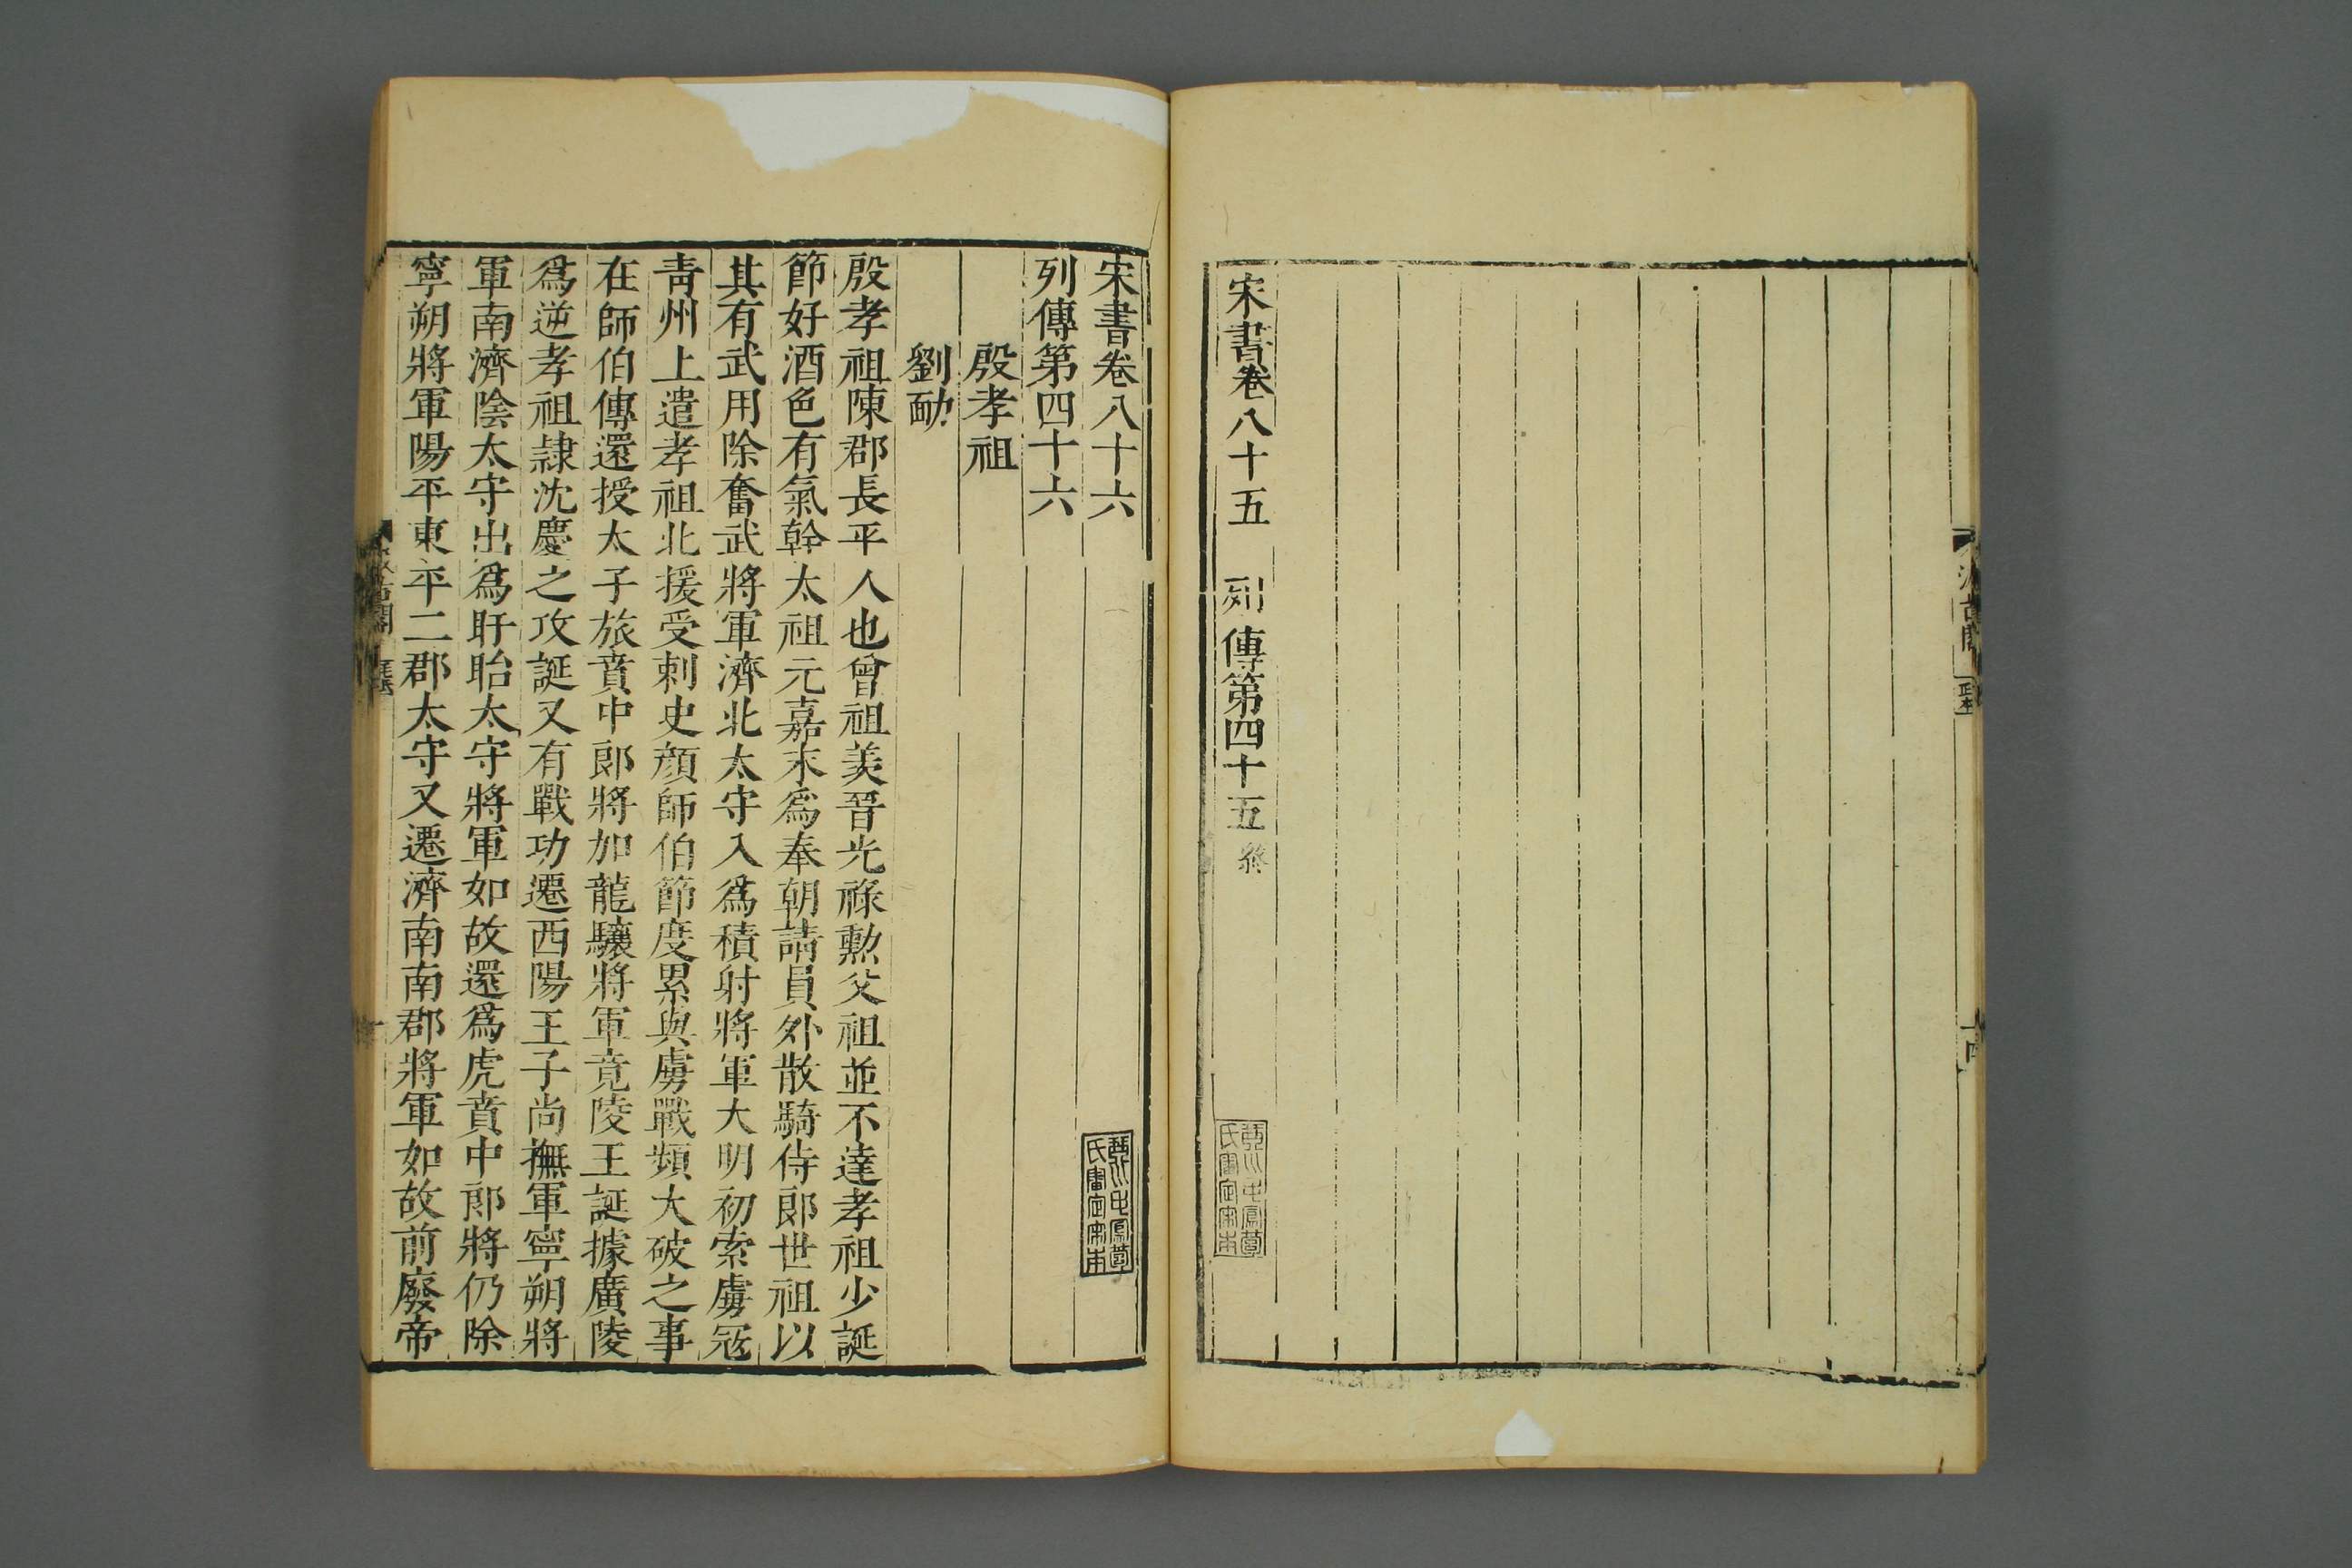 宋書卷八十五　列傳第四十五終
宋書卷八十六
列傳第四十六
殷孝祖
劉勔
殷孝祖陳郡長平人也曾祖羨晉光祿勲父祖並不達孝祖少誕
節好酒色有氣幹太祖元嘉末爲奉朝請員外散騎侍郎世祖以
其有武用除奮武將軍濟北太守入爲積射將軍大明初索虜寇
青州上遣孝祖北援受刺史顔師伯節度累與虜戰頻大破之事
在師伯傳還授太子旅賁中郎將加龍驤將軍竟陵王誕據廣陵
爲逆孝祖隷沈慶之攻誕又有戰功遷西陽王子尚撫軍寧朔將
軍南濟陰太守出爲盱眙太守將軍如故還爲虎賁中郎將仍除
寧朔將軍陽平東平二郡太守又遷濟南南郡將軍如故前廢帝